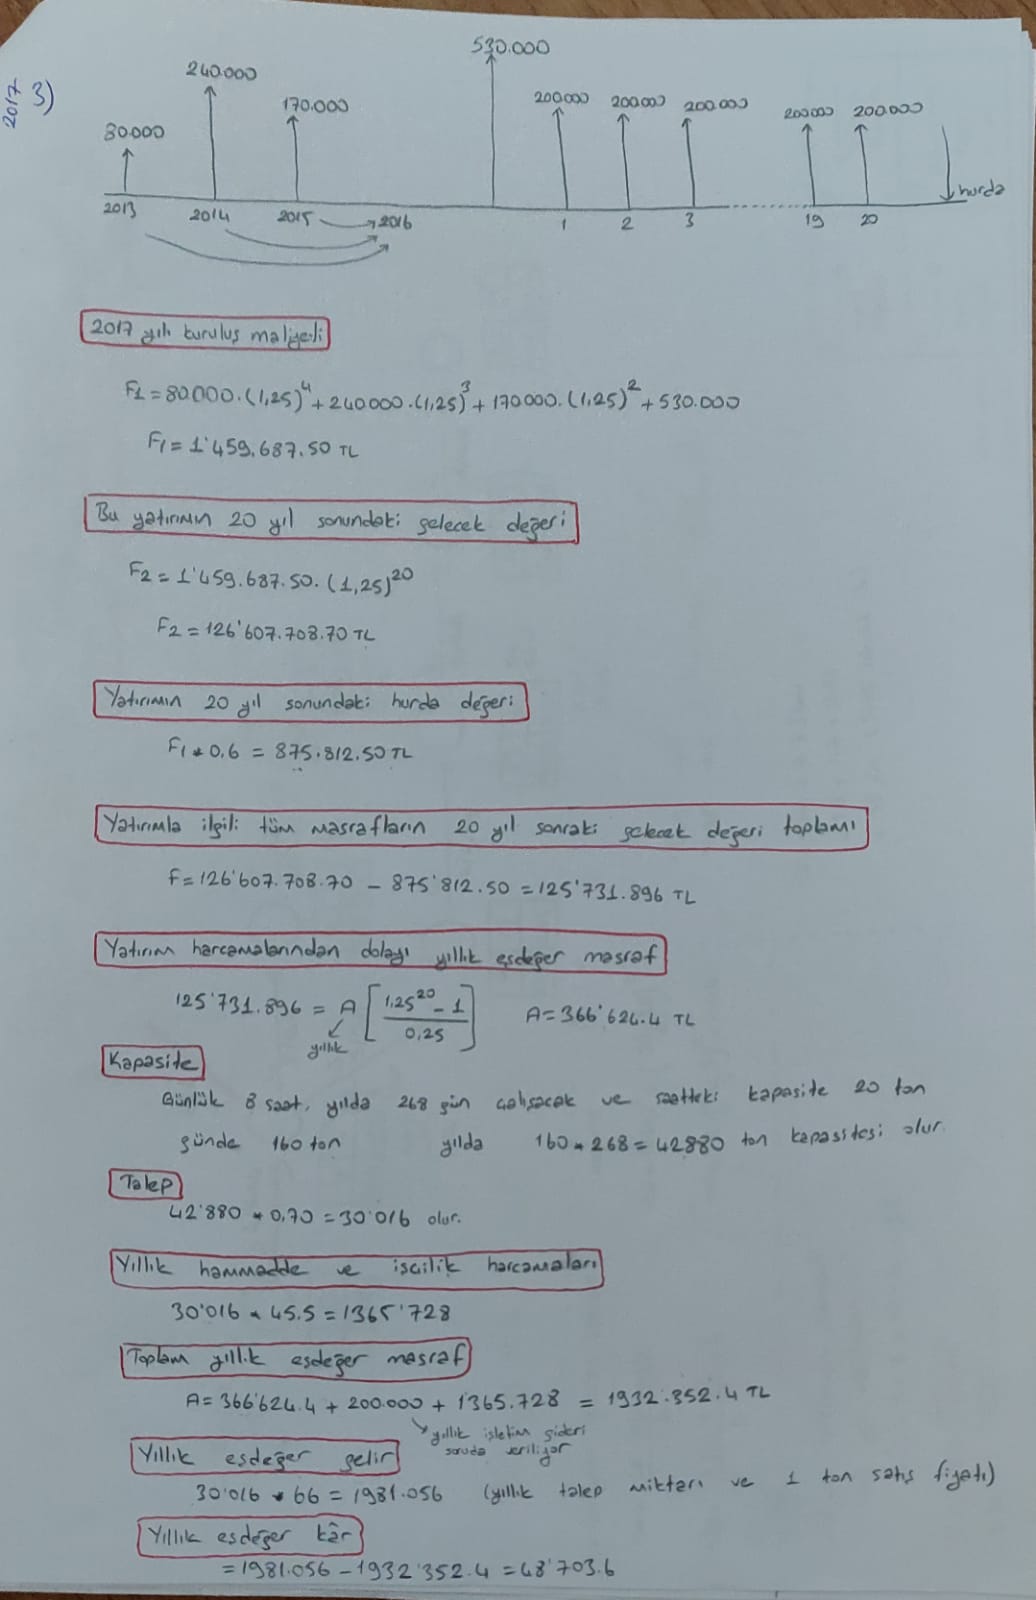 2017 3)
80.000 240.000 170.000 530.000 200.000 200.000 200.000 200.000 200.000 hurda
2013 2014 2015 2016 1 2 3 19 20
2017 yılı kuruluş maliyeti
F1 = 80.000.(1,25)^4 + 240.000.(1,25)^3 + 170.000.(1,25)^2 + 530.000
F1 = 1'459.687.50 TL
Bu yatırımın 20 yıl sonundaki gelecek değeri
F2 = 1'459.687.50.(1,25)^20
F2 = 126'607.708.70 TL
Yatırımın 20 yıl sonundaki hurda değeri
F1 * 0.6 = 875.812.50 TL
Yatırımla ilgili tüm masrafların 20 yıl sonraki gelecek değeri toplamı
F = 126'607.708.70 - 875'812.50 = 125'731.896 TL
Yatırım harcamalarından dolayı yıllık eşdeğer masraf
125'731.896 = A [(1.25^20 - 1) / 0,25] A = 366'624.4 TL
yıllık
Kapasite
Günlük 8 saat, yılda 268 gün çalışacak ve saatteki kapasite 20 ton
günde 160 ton yılda 160 * 268 = 42880 ton kapasitesi olur.
Talep
42'880 * 0,70 = 30'016 olur.
Yıllık hammadde ve işçilik harcamaları
30'016 * 45.5 = 1365'728
Toplam yıllık eşdeğer masraf
A = 366'624.4 + 200.000 + 1'365.728 = 1932.352.4 TL
yıllık işletim gideri
soruda veriliyor
Yıllık eşdeğer gelir
30'016 * 66 = 1981.056 (yıllık talep miktarı ve 1 ton satış fiyatı)
Yıllık eşdeğer kâr
= 1981.056 - 1932'352.4 = 48'703.6